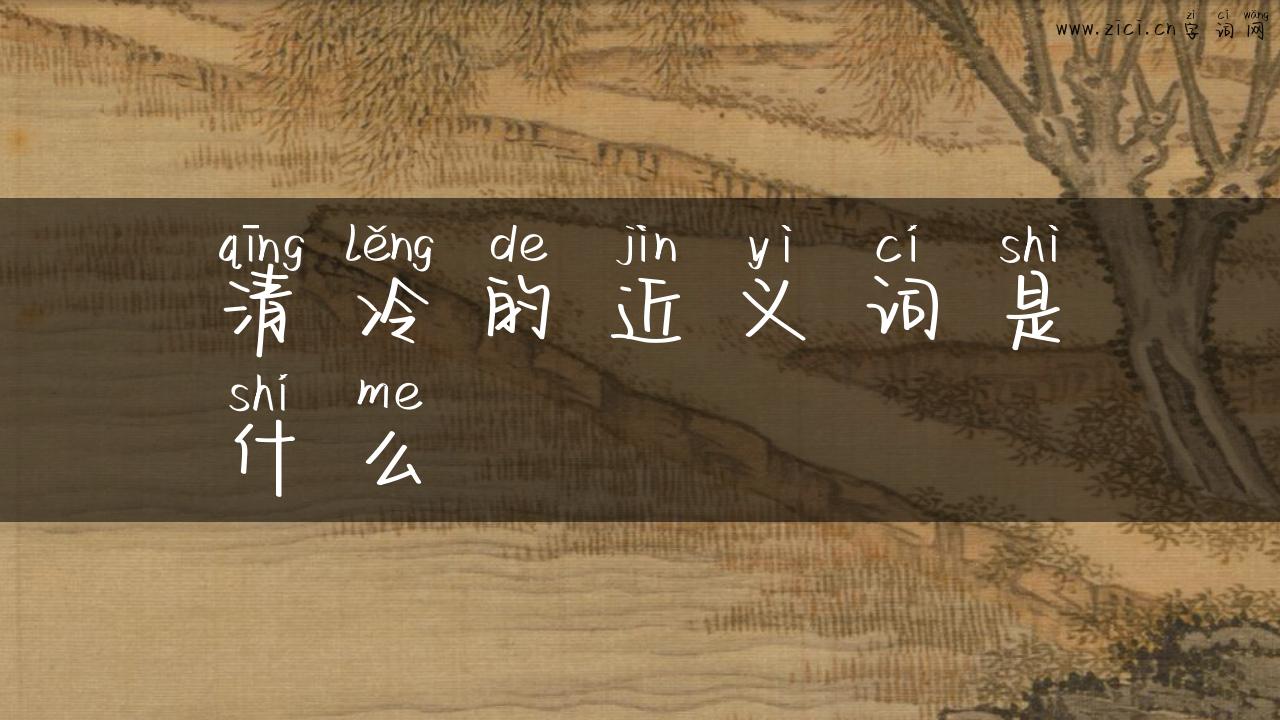 zì cí wǎng
www.zici.cn字词网
qīng lěng de jìn yì cí shì
清冷的近义词是
shí me
什么